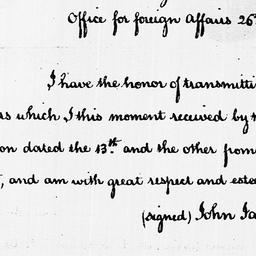 Office for foreign Affairs 26
I have the honor of transmitti
as which I this moment received by
on dated the 13th and the other from
and am with great respect and este
(signed) John Ja